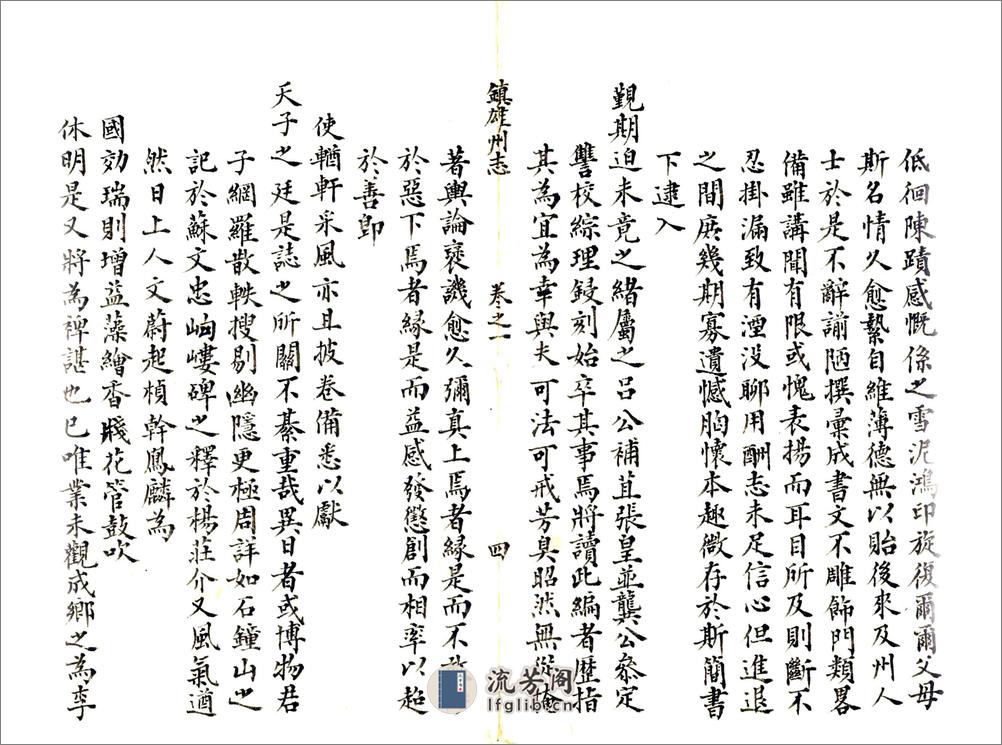 低徊陳蹟感慨係之雪泥鴻印旋復爾爾父母
斯名情久愈縶自維薄德無以貽後來及州人
士於是不辭謭陋撰彙成書文不雕飾門類畧
備雖講聞有限或愧表揚而耳目所及則斷不
忍掛漏致有湮没聊用酬志未足信心但進退
之間庶幾期寡遺憾胸懷本趣微存於斯簡書
下逮入
覲期迫未竟之緒屬之呂公補苴張皇並龔公叅定
讐校綜理鋟刻始卒其事焉將讀此編者歷指
其為宜為幸與夫可法可戒芳臭昭然無從
鎮雄州志 卷之一 四
著輿論襃譏愈久彌真上焉者緣是而不
於惡下焉者緣是而益感發懲創而相率以超
於善即
使輶軒采風亦且披卷備悉以獻
天子之廷是誌之所關不綦重哉異日者或博物君
子網羅散軼搜剔幽隱更極周詳如石鐘山之
記於蘇文忠岣嶁碑之釋於楊莊介又風氣遒
然日上人文蔚起楨幹鳳麟為
國効瑞則增益藻繪香牋花管鼓吹
休明是又將為裨諶也已唯業未觀成鄉之為李
流芳阁
lfglib.cn